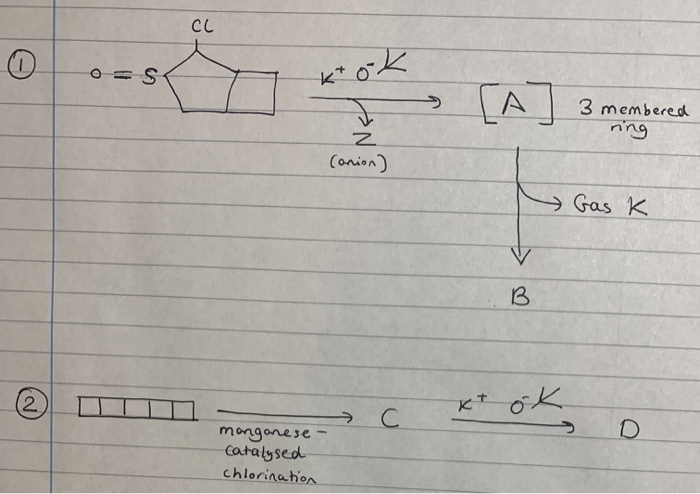 Cl
① O = S K⁺ O⁻ [A] 3 membered
ring
Z
(anion)
Gas K
B
② C K⁺ O⁻ D
manganese -
catalysed
chlorination